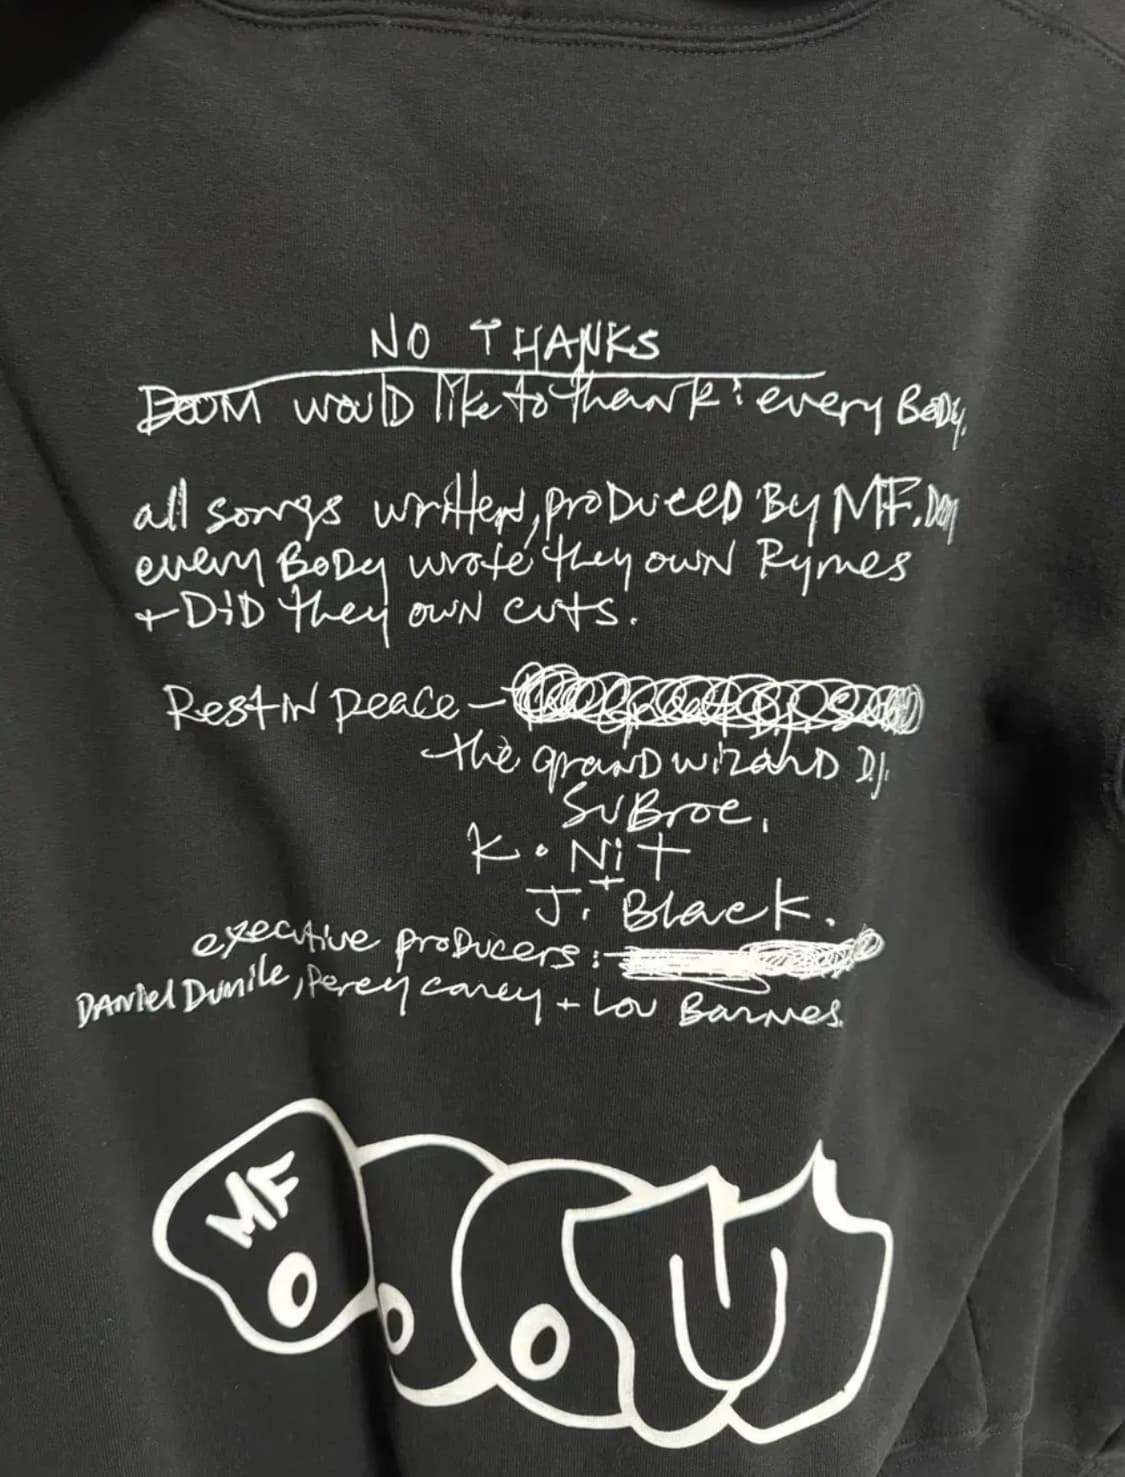 NO THANKS
DOOM would like to thank: every BoDy.
all songs written, proDuceD By MF. Dom
every BoDy wrote they own Rymes
+ DiD they own cuts.
Rest iN peace –
the granD wizarD D.J.
SuBroc,
K. Nit
+
J. Black.
executive proDucers:
DANiel Dumile, Percy carey + Lou Barnes.
MF
DOOM